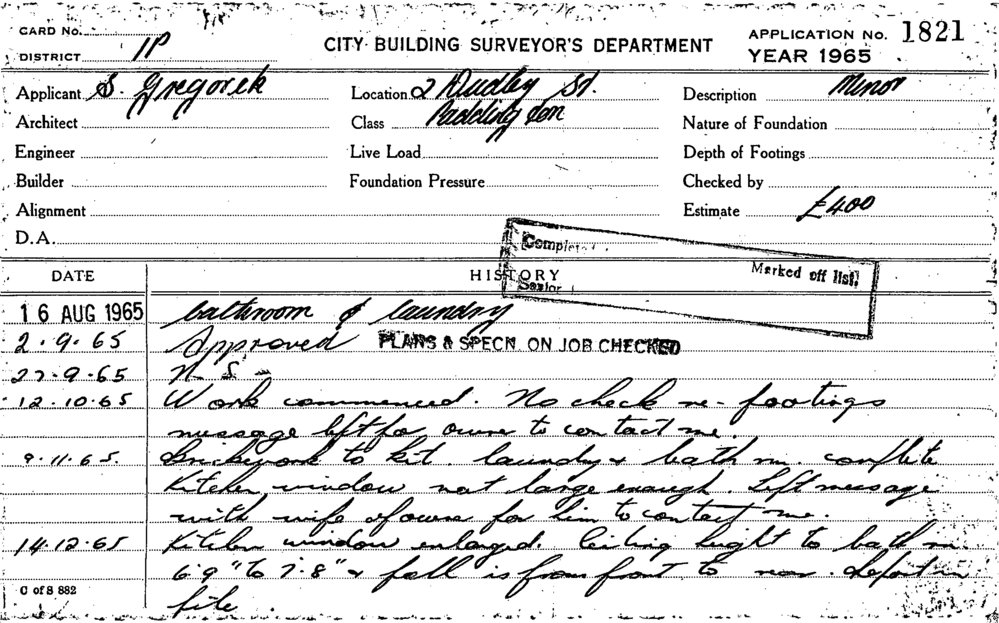 CARD No.
DISTRICT 1P
CITY BUILDING SURVEYOR'S DEPARTMENT
APPLICATION No. 1821
YEAR 1965
Applicant S. Gregorek
Location 2 Dudley St.
Description Minor
Architect
Class Paddington
Nature of Foundation
Engineer
Live Load
Depth of Footings
Builder
Foundation Pressure
Checked by
Alignment
Estimate £400
D.A.
Marked off list
Senior
DATE HISTORY
16 AUG 1965 bathroom & laundry
2.9.65 Approved PLANS & SPECN. ON JOB CHECKED
27.9.65 N.S.
12.10.65 Work commenced. No check re-footings
message left for owner to contact me.
9.11.65. Brickwork to kit. laundry & bath rm complete
Kitchen window not large enough. Left message
with wife of owner for him to contact me.
14.12.65 Kitchen window enlarged. Ceiling height to bath rm.
6'9" to 7'8" & fall is from front to rear. Report in
file.
C of S 882